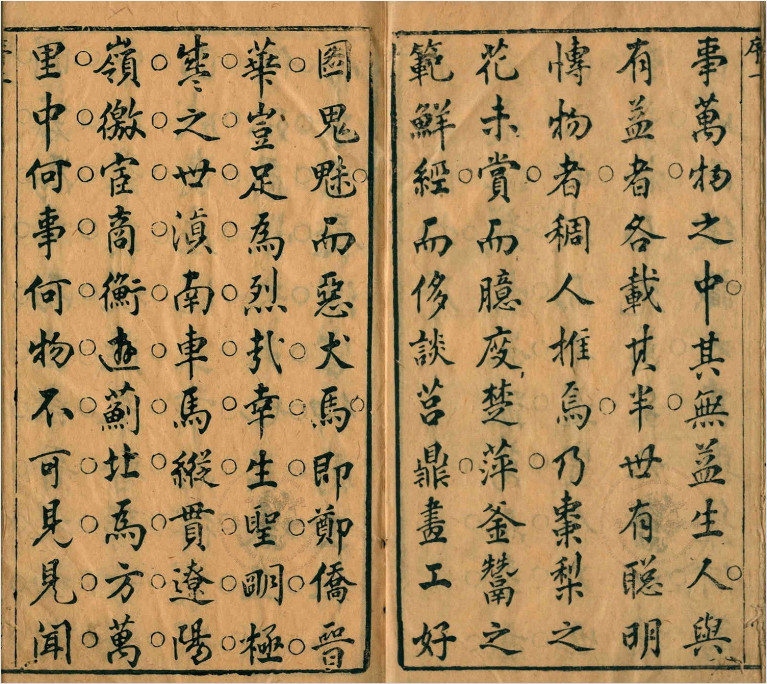 事萬物之中其無益生人與
有益者各載其半世有聰明
愽物者稠人推焉乃棗梨之
花未賞而臆度楚萍釜鬵之
範鮮經而侈談莒鼎畫工好
圖鬼魅而惡犬馬即鄭僑晉
華豈足爲烈哉幸生聖明極
盛之世滇南車馬縱貫遼陽
嶺徼宦商衡遊薊北爲方萬
里中何事何物不可見見聞